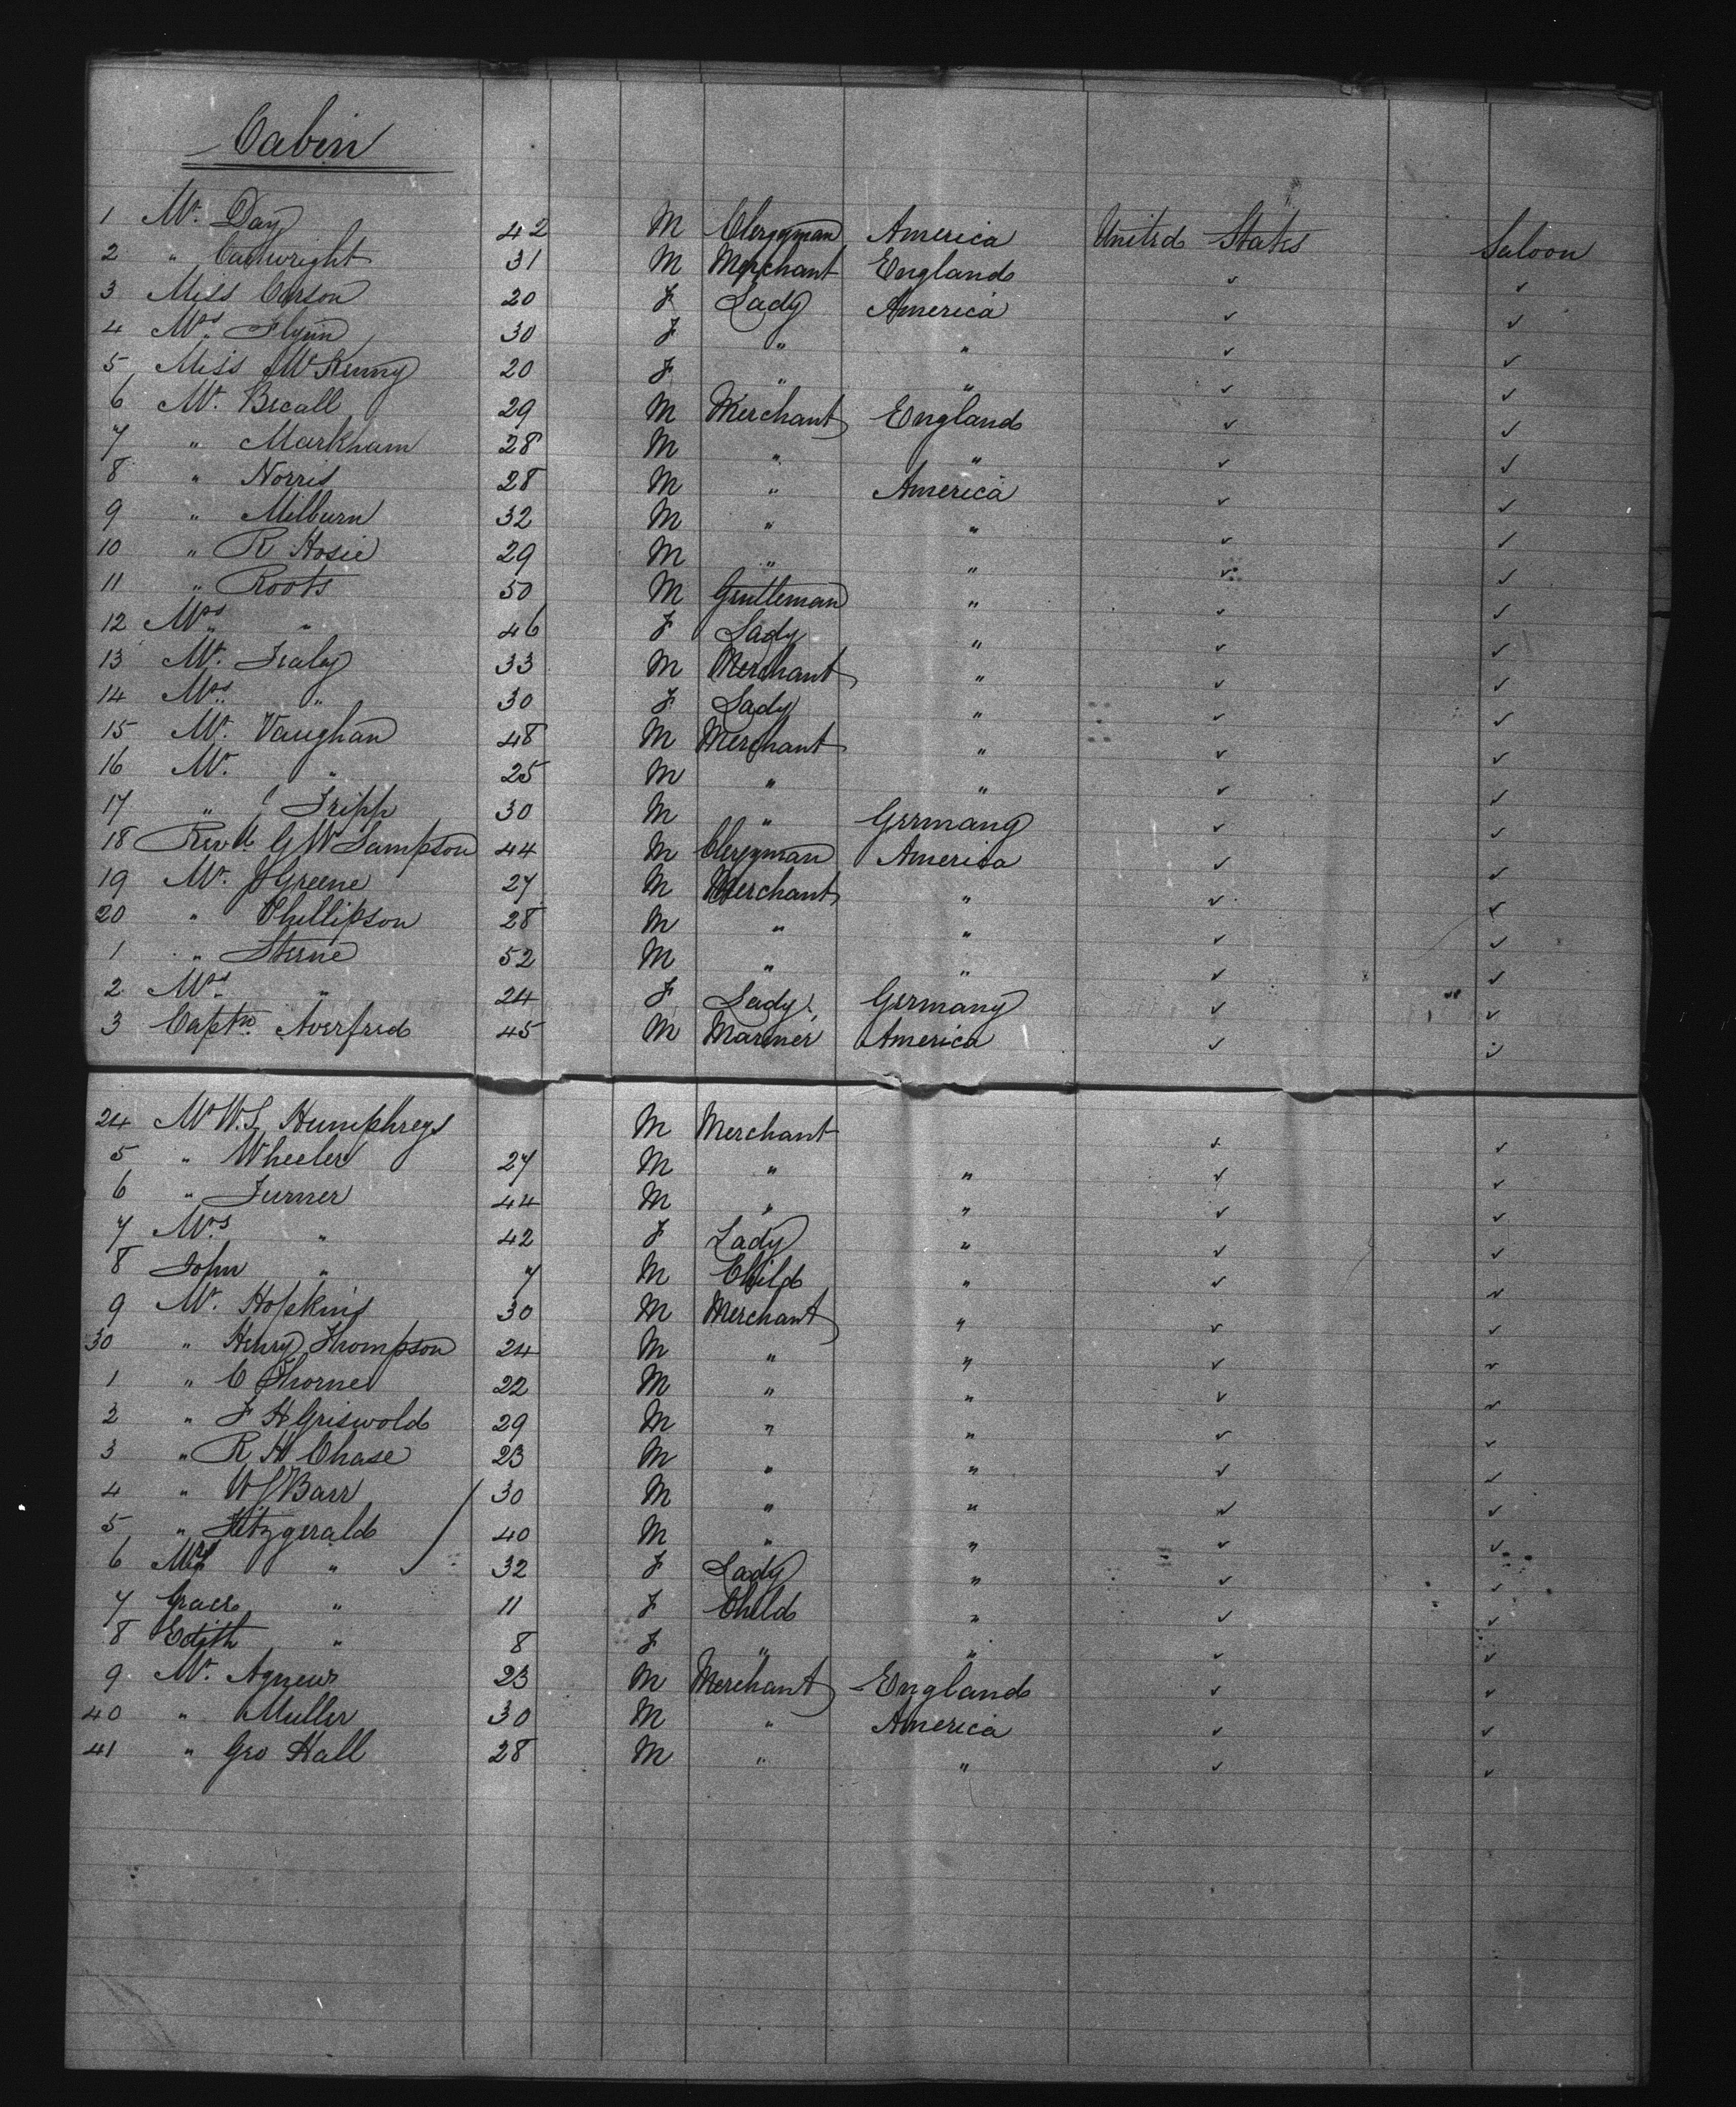 Cabin
1 Mr. Day 42 M Clergyman America United States Saloon
2 " Cartwright 31 M Merchant England ✓ ✓
3 Miss Carson 20 F Lady America ✓ ✓
4 Mrs. Flynn 30 F " " ✓ ✓
5 Miss McKenny 20 F " " ✓ ✓
6 Mr. Becall 29 M Merchant England ✓ ✓
7 " Markham 28 M " " ✓ ✓
8 " Norris 28 M " America ✓ ✓
9 " Milburn 32 M " " ✓ ✓
10 " R Hosie 29 M " " ✓ ✓
11 " Roots 50 M Gentleman " ✓ ✓
12 Mrs. " 46 F Lady " ✓ ✓
13 Mr. 33 M Merchant " ✓ ✓
14 Mrs. " 30 F Lady " ✓ ✓
15 Mr. Vaughan 48 M Merchant " ✓ ✓
16 Mr. " 25 M " " ✓ ✓
17 " Tripp 30 M " Germany ✓ ✓
18 Revd. G W Sampson 44 M Clergyman America ✓ ✓
19 Mr. J Greene 27 M Merchant " ✓ ✓
20 " Phillipson 28 M " " ✓ ✓
1 " Sterne 52 M " " ✓ ✓
2 Mrs. " 24 F Lady Germany ✓ ✓
3 Captn. Averfred 45 M Mariner America ✓ ✓
24 Mr W.S. Humphreys M Merchant ✓ ✓
5 " Wheeler 27 M " " ✓ ✓
6 " Turner 44 M " " ✓ ✓
7 Mrs. " 42 F Lady " ✓ ✓
8 John " 7 M Child " ✓ ✓
9 Mr. Hopkins 30 M Merchant " ✓ ✓
30 " Henry Thompson 24 M " " ✓ ✓
1 " C Thorne 22 M " " ✓ ✓
2 " F H Griswold 29 M " " ✓ ✓
3 " R H Chase 23 M " " ✓ ✓
4 " W S Barr 30 M " " ✓ ✓
5 " Fitzgerald 40 M " " ✓ ✓
6 Mrs " 32 F Lady " ✓ ✓
7 Grace " 11 F Child " ✓ ✓
8 Edith " 8 F " " ✓ ✓
9 Mr. Agnew 23 M Merchant England ✓ ✓
40 " Muller 30 M " America ✓ ✓
41 " Geo Hall 28 M " " ✓ ✓